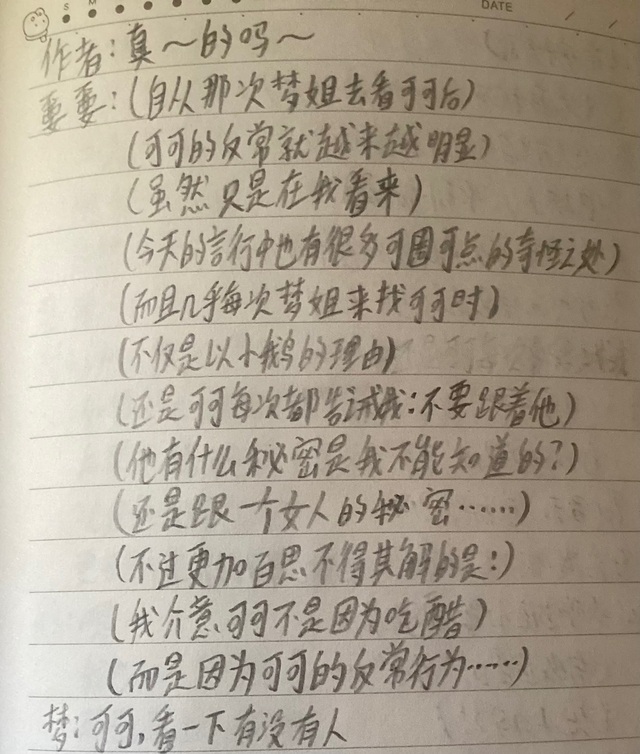 S M
DATE
作者:真～的吗～
要要:(自从那次梦姐去看可可后)
(可可的反常就越来越明显)
(虽然只是在我看来)
(今天的言行中也有很多可圈可点的奇怪之处)
(而且几乎每次梦姐来找可可时)
(不仅是以小鹅的理由)
(还是可可每次都告诫我:不要跟着他)
(他有什么秘密是我不能知道的?)
(还是跟一个女人的秘密……)
(不过更加百思不得其解的是:)
(我介意可可不是因为吃醋)
(而是因为可可的反常行为……)
梦:可可,看一下有没有人